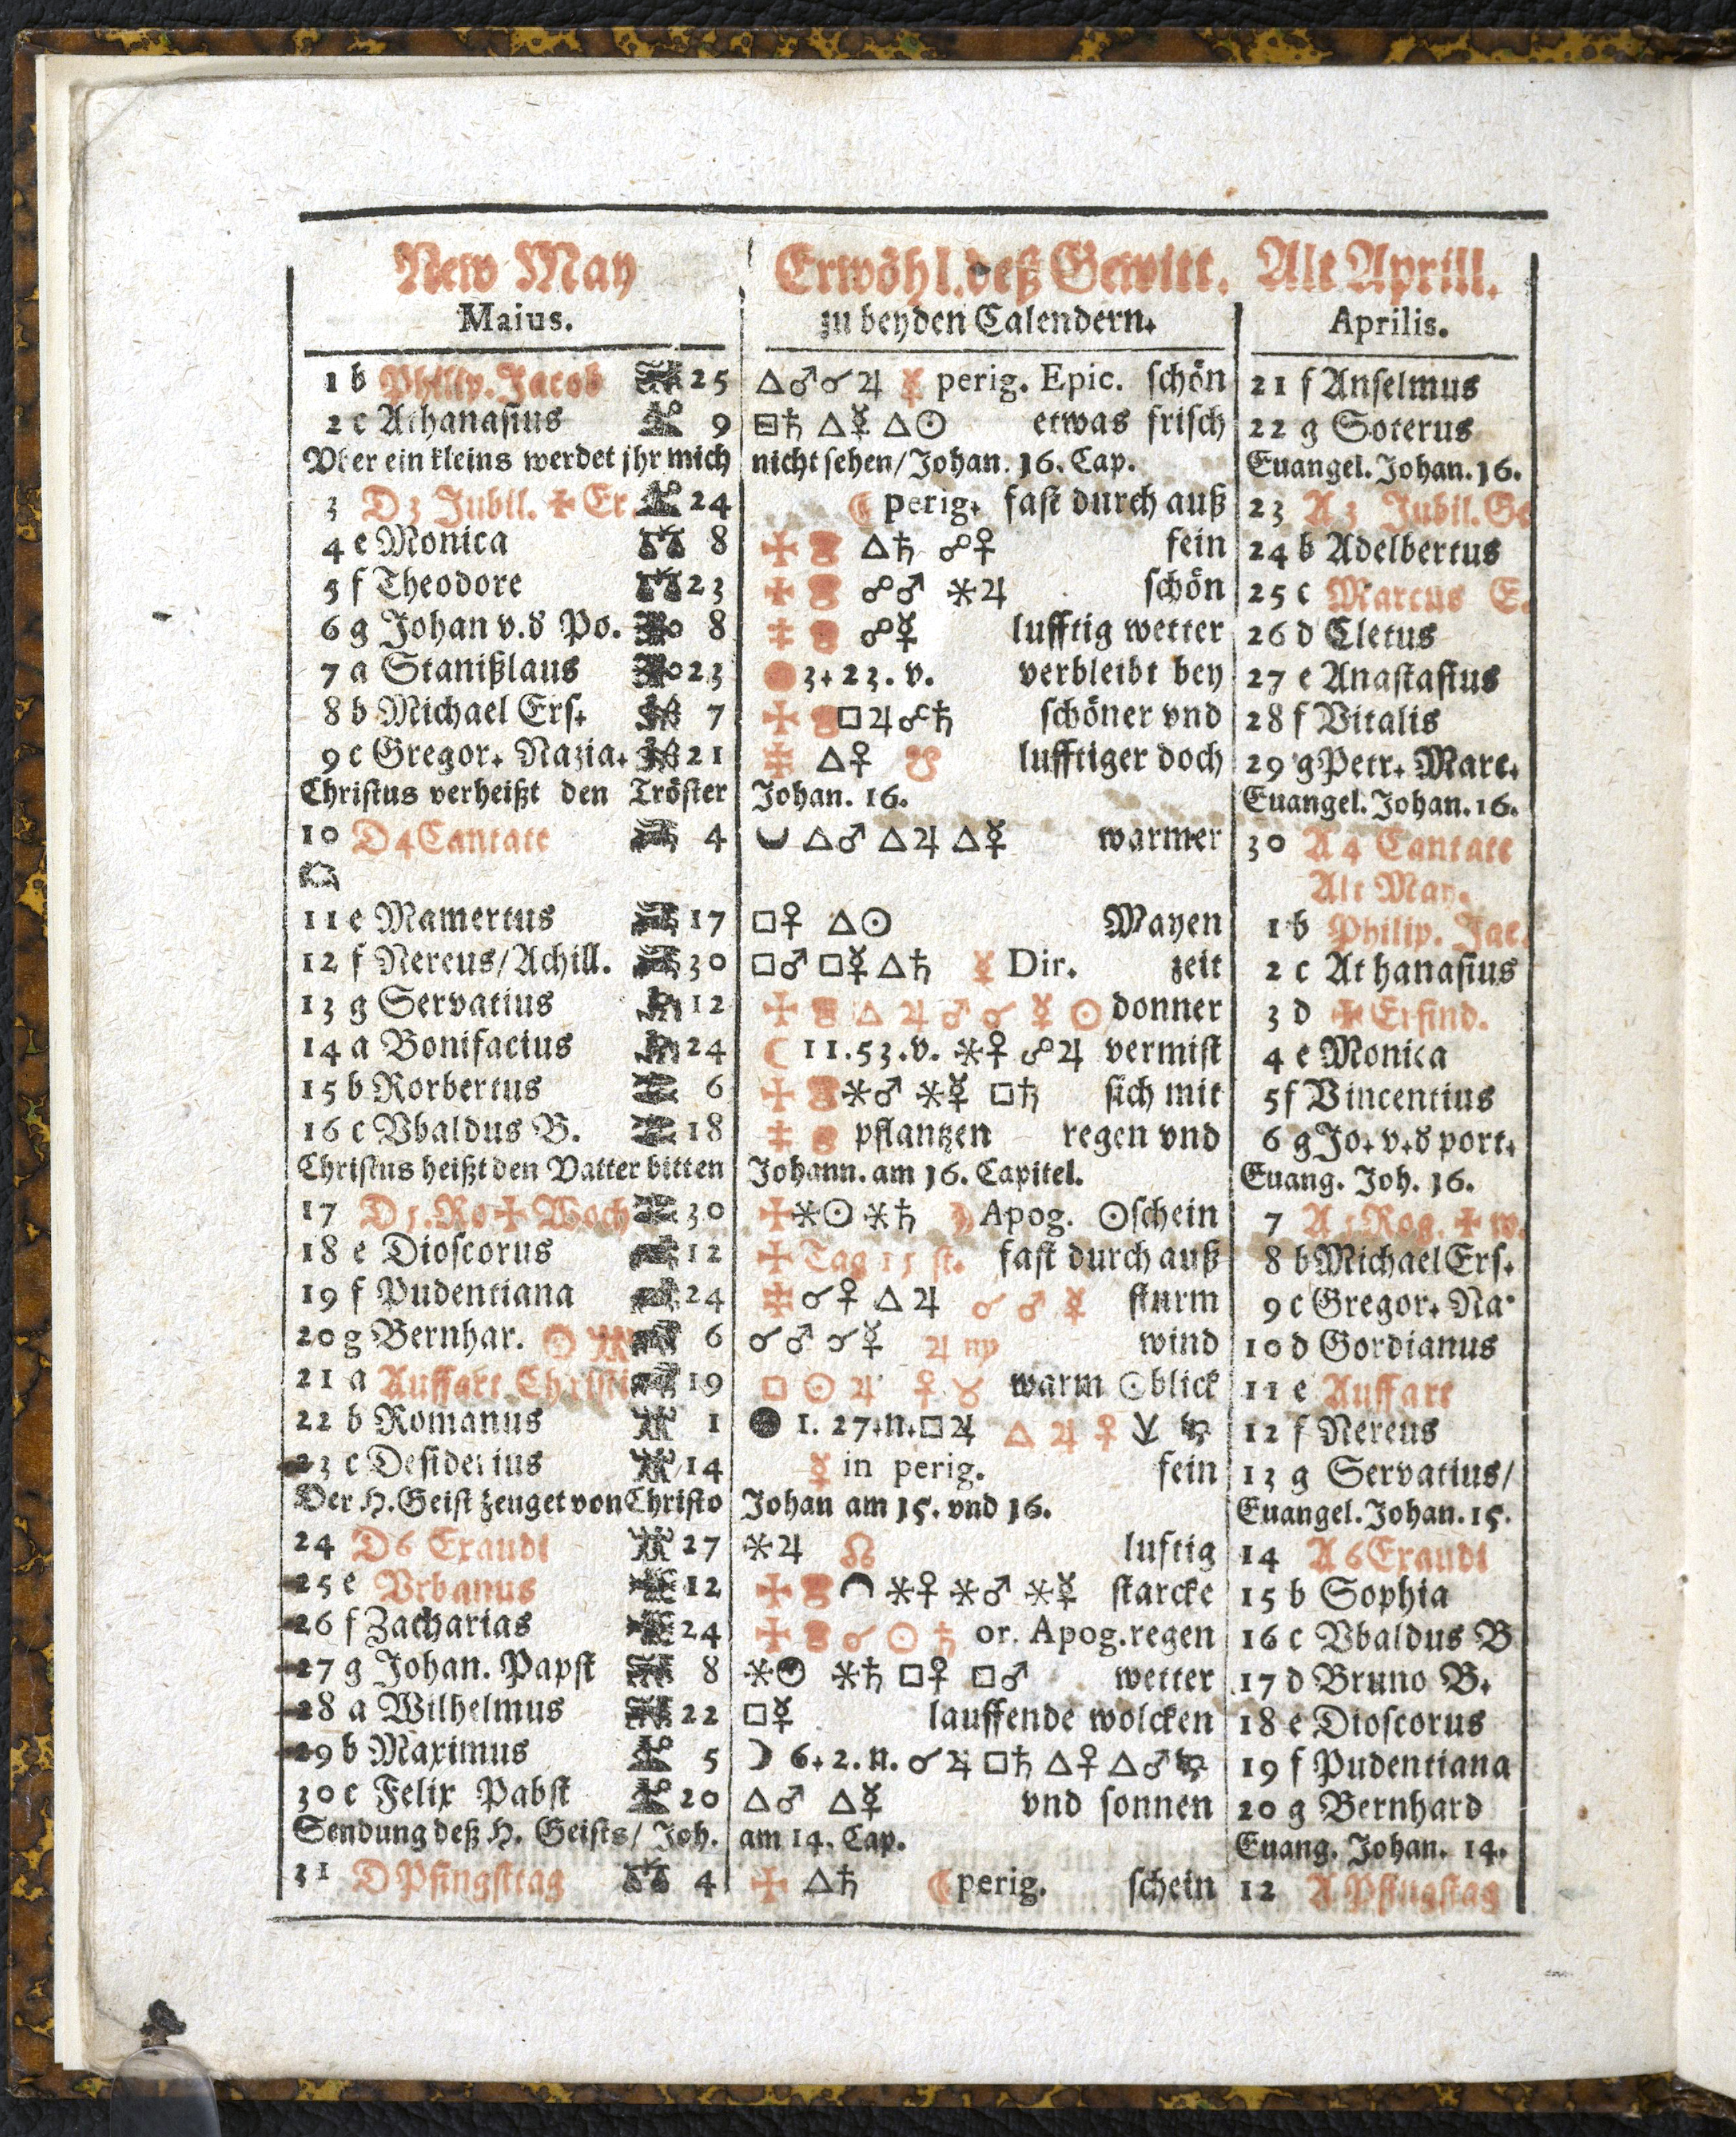 New May Erwöhl. deß Gewitt. Alt Aprill.
Maius. zu beyden Calendern. Aprilis.
1 b Philip. Jacob 25 △♂☌♃ ☿ perig. Epic. schön 21 f Anselmus
2 c Athanasius 9 □♄ △☿ △☉ etwas frisch 22 g Soterus
Vber ein kleins werdet jhr mich nicht sehen/Johan. 16. Cap. Euangel. Johan. 16.
3 D 3 Jubil. ✠ Er. 24 ☾ perig. fast durch auß 23 A 3 Jubil. Ge
4 e Monica 8 ✠ △♄ ☍♀ fein 24 b Adelbertus
5 f Theodore 23 ✠ ☍♂ ⚹♃ schön 25 c Marcus E.
6 g Johan v.d Po. 8 ‡ ☍☿ lufftig wetter 26 d Cletus
7 a Stanißlaus 23 3. 23. v. verbleibt bey 27 e Anastasius
8 b Michael Ers. 7 ✠ □♃☍♄ schöner vnd 28 f Vitalis
9 c Gregor. Nazia. 21 △♀ ☋ lufftiger doch 29 g Petr. Mart.
Christus verheißt den Tröster Johan. 16. Euangel. Johan. 16.
10 D 4 Cantate 4 △♂ △♃ △☿ warmer 30 A 4 Cantate
Alt May.
11 e Mamertus 17 □♀ △☉ Mayen 1 b Philip. Jac.
12 f Nereus/Achill. 30 □♂ □☿ △♄ ☿ Dir. zeit 2 c Athanasius
13 g Servatius 12 ✠ △ ♃ ♂ ☌ ☿ ☉ donner 3 d ✠ Erfind.
14 a Bonifacius 24 ☾ 11. 53. v. ⚹♀ ☍♃ vermist 4 e Monica
15 b Rorbertus 6 ✠ ⚹♂ ⚹☿ □♄ sich mit 5 f Vincentius
16 c Vbaldus B. 18 ‡ pflantzen regen vnd 6 g Jo. v.d port.
Christus heißt den Vatter bitten Johann. am 16. Capitel. Euang. Joh. 16.
17 D 5. Ro ✠ Woch 30 ✠⚹☉ ⚹♄ ☽ Apog. ☉schein 7 A 5 Rog. ✠ w.
18 e Dioscorus 12 ✠ Tag 15 st. fast durch auß 8 b Michael Ers.
19 f Pudentiana 24 ☌♀ △♃ ☌ ♂ ☿ sturm 9 c Gregor. Na.
20 g Bernhar. ☉ 6 ☌♂ ☌☿ ♃ ♍ wind 10 d Gordianus
21 a Auffart Christi 19 □ ☉ ♃ ♀ ♉ warm ☉blick 11 e Auffart
22 b Romanus 1 ● 1. 27. n. □♃ △ ♃ ♀ 12 f Nereus
23 c Desiderius 14 ☿ in perig. fein 13 g Servatius/
Der H. Geist zeuget von Christo Johan am 15. vnd 16. Euangel. Johan. 15.
24 D 6 Exaudi 27 ⚹♃ ☊ luftig 14 A 6 Exaudi
25 e Vrbanus 12 ✠ ⚹♀ ⚹♂ ⚹☿ starcke 15 b Sophia
26 f Zacharias 24 ✠ ☌ ☉ ♄ or. Apog. regen 16 c Vbaldus B
27 g Johan. Papst 8 ⚹☉ ⚹♄ □♀ □♂ wetter 17 d Bruno B.
28 a Wilhelmus 22 □☿ lauffende wolcken 18 e Dioscorus
29 b Maximus 5 ☽ 6. 2. n. ☌♃ □♄ △♀ △♂ 19 f Pudentiana
30 c Felix Pabst 20 △♂ △☿ vnd sonnen 20 g Bernhard
Sendung deß H. Geists/ Joh. am 14. Cap. Euang. Johan. 14.
31 D Pfingsttag 4 ✠ △♄ ☾ perig. schein 12 A Pfingstag